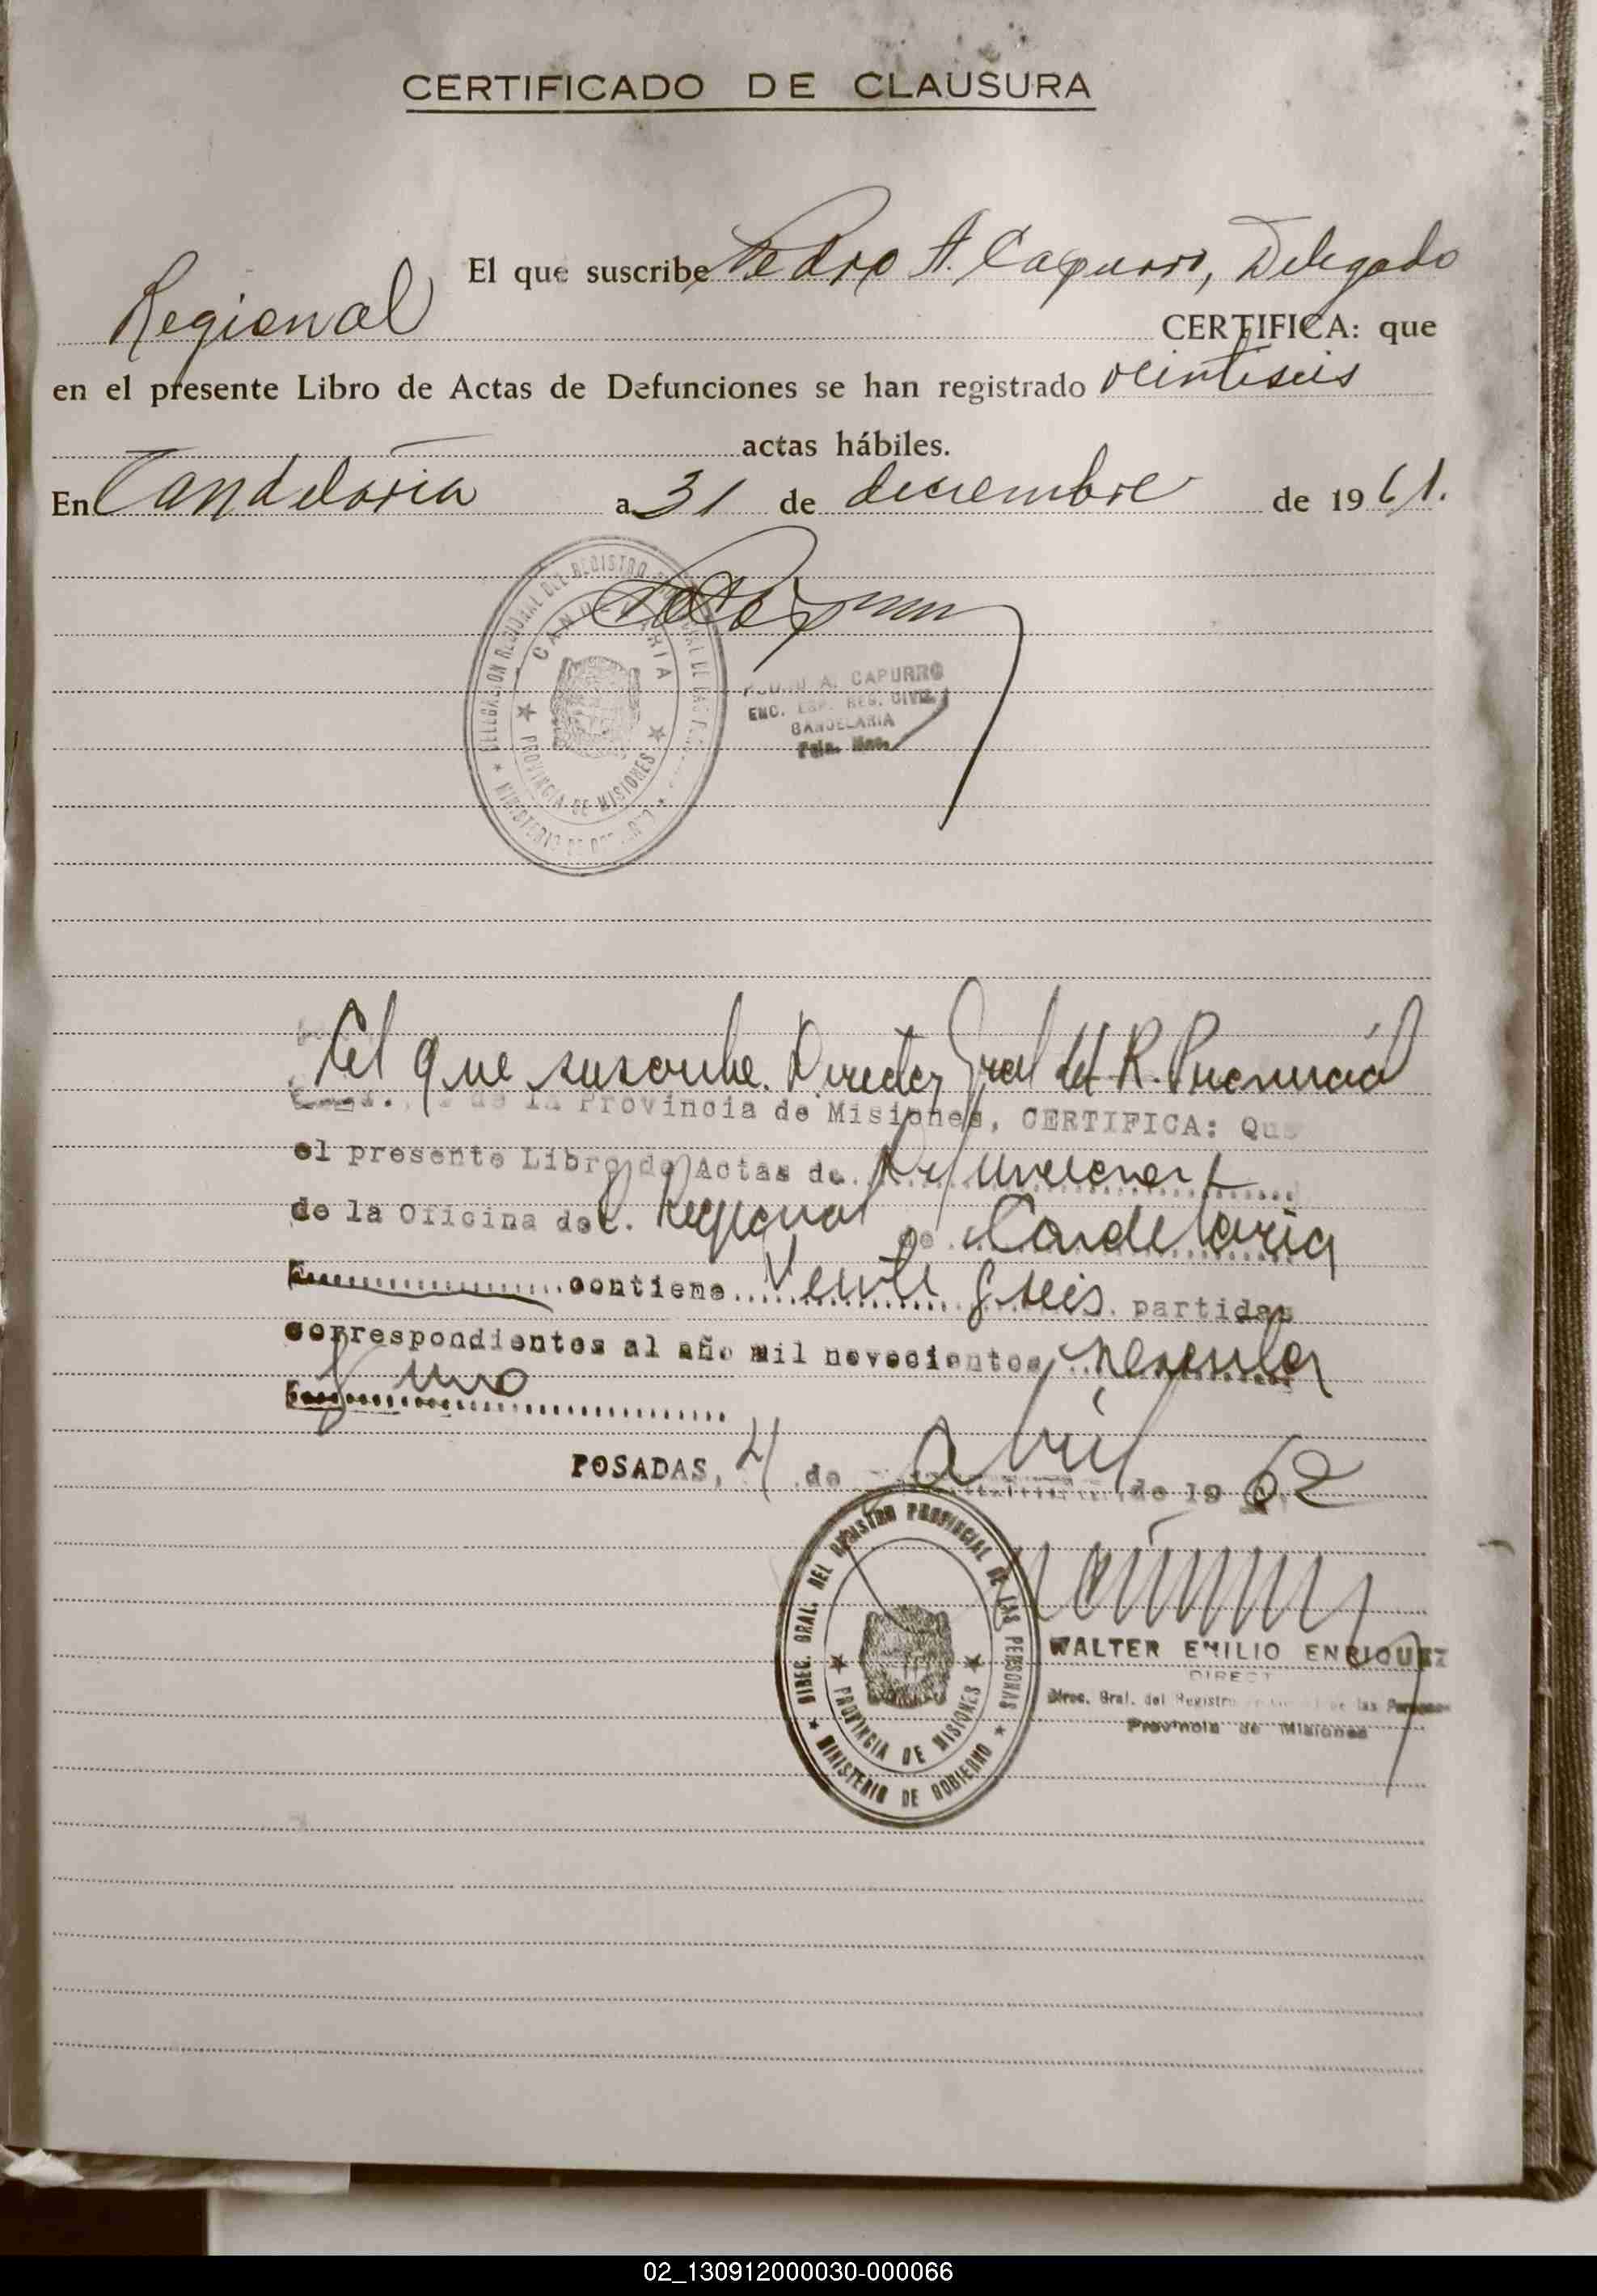 CERTIFICADO DE CLAUSURA
El que suscribe Pedro A. Capurro, Delegado
Regional CERTIFICA: que
en el presente Libro de Actas de Defunciones se han registrado veintiseis
actas hábiles.
En Candelaria a 31 de deciembre de 1961.
CANDELARIA
PROVINCIA DE MISIONES
A. CAPURRO
ENC. REG. CIVIL
CANDELARIA
El que suscribe. Director Gral del R. Provincial
de la Provincia de Misiones, CERTIFICA: Que
el presente Libro de Actas de Defunciones
de la Oficina del Regional de Candelaria
contiene Veinte y seis partidas
correspondientes al año mil novecientos sesenta
y uno
POSADAS, 4 de abril de 1962
DIREC. GRAL. DEL REGISTRO PROVINCIAL DE LAS PERSONAS
PROVINCIA DE MISIONES
MINISTERIO DE GOBIERNO
WALTER EMILIO ENRIQUEZ
DIRECT
Direc. Gral. del Registro de las Personas
Provincia de Misiones
02_130912000030-000066